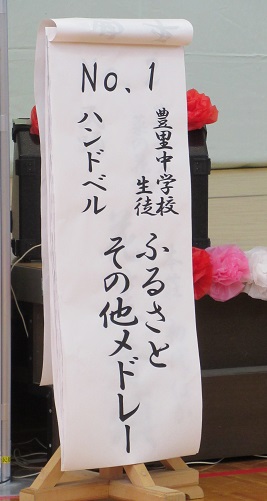 No. 1
豊里中学校
生徒
ハンドベル
ふるさと
その他メドレー